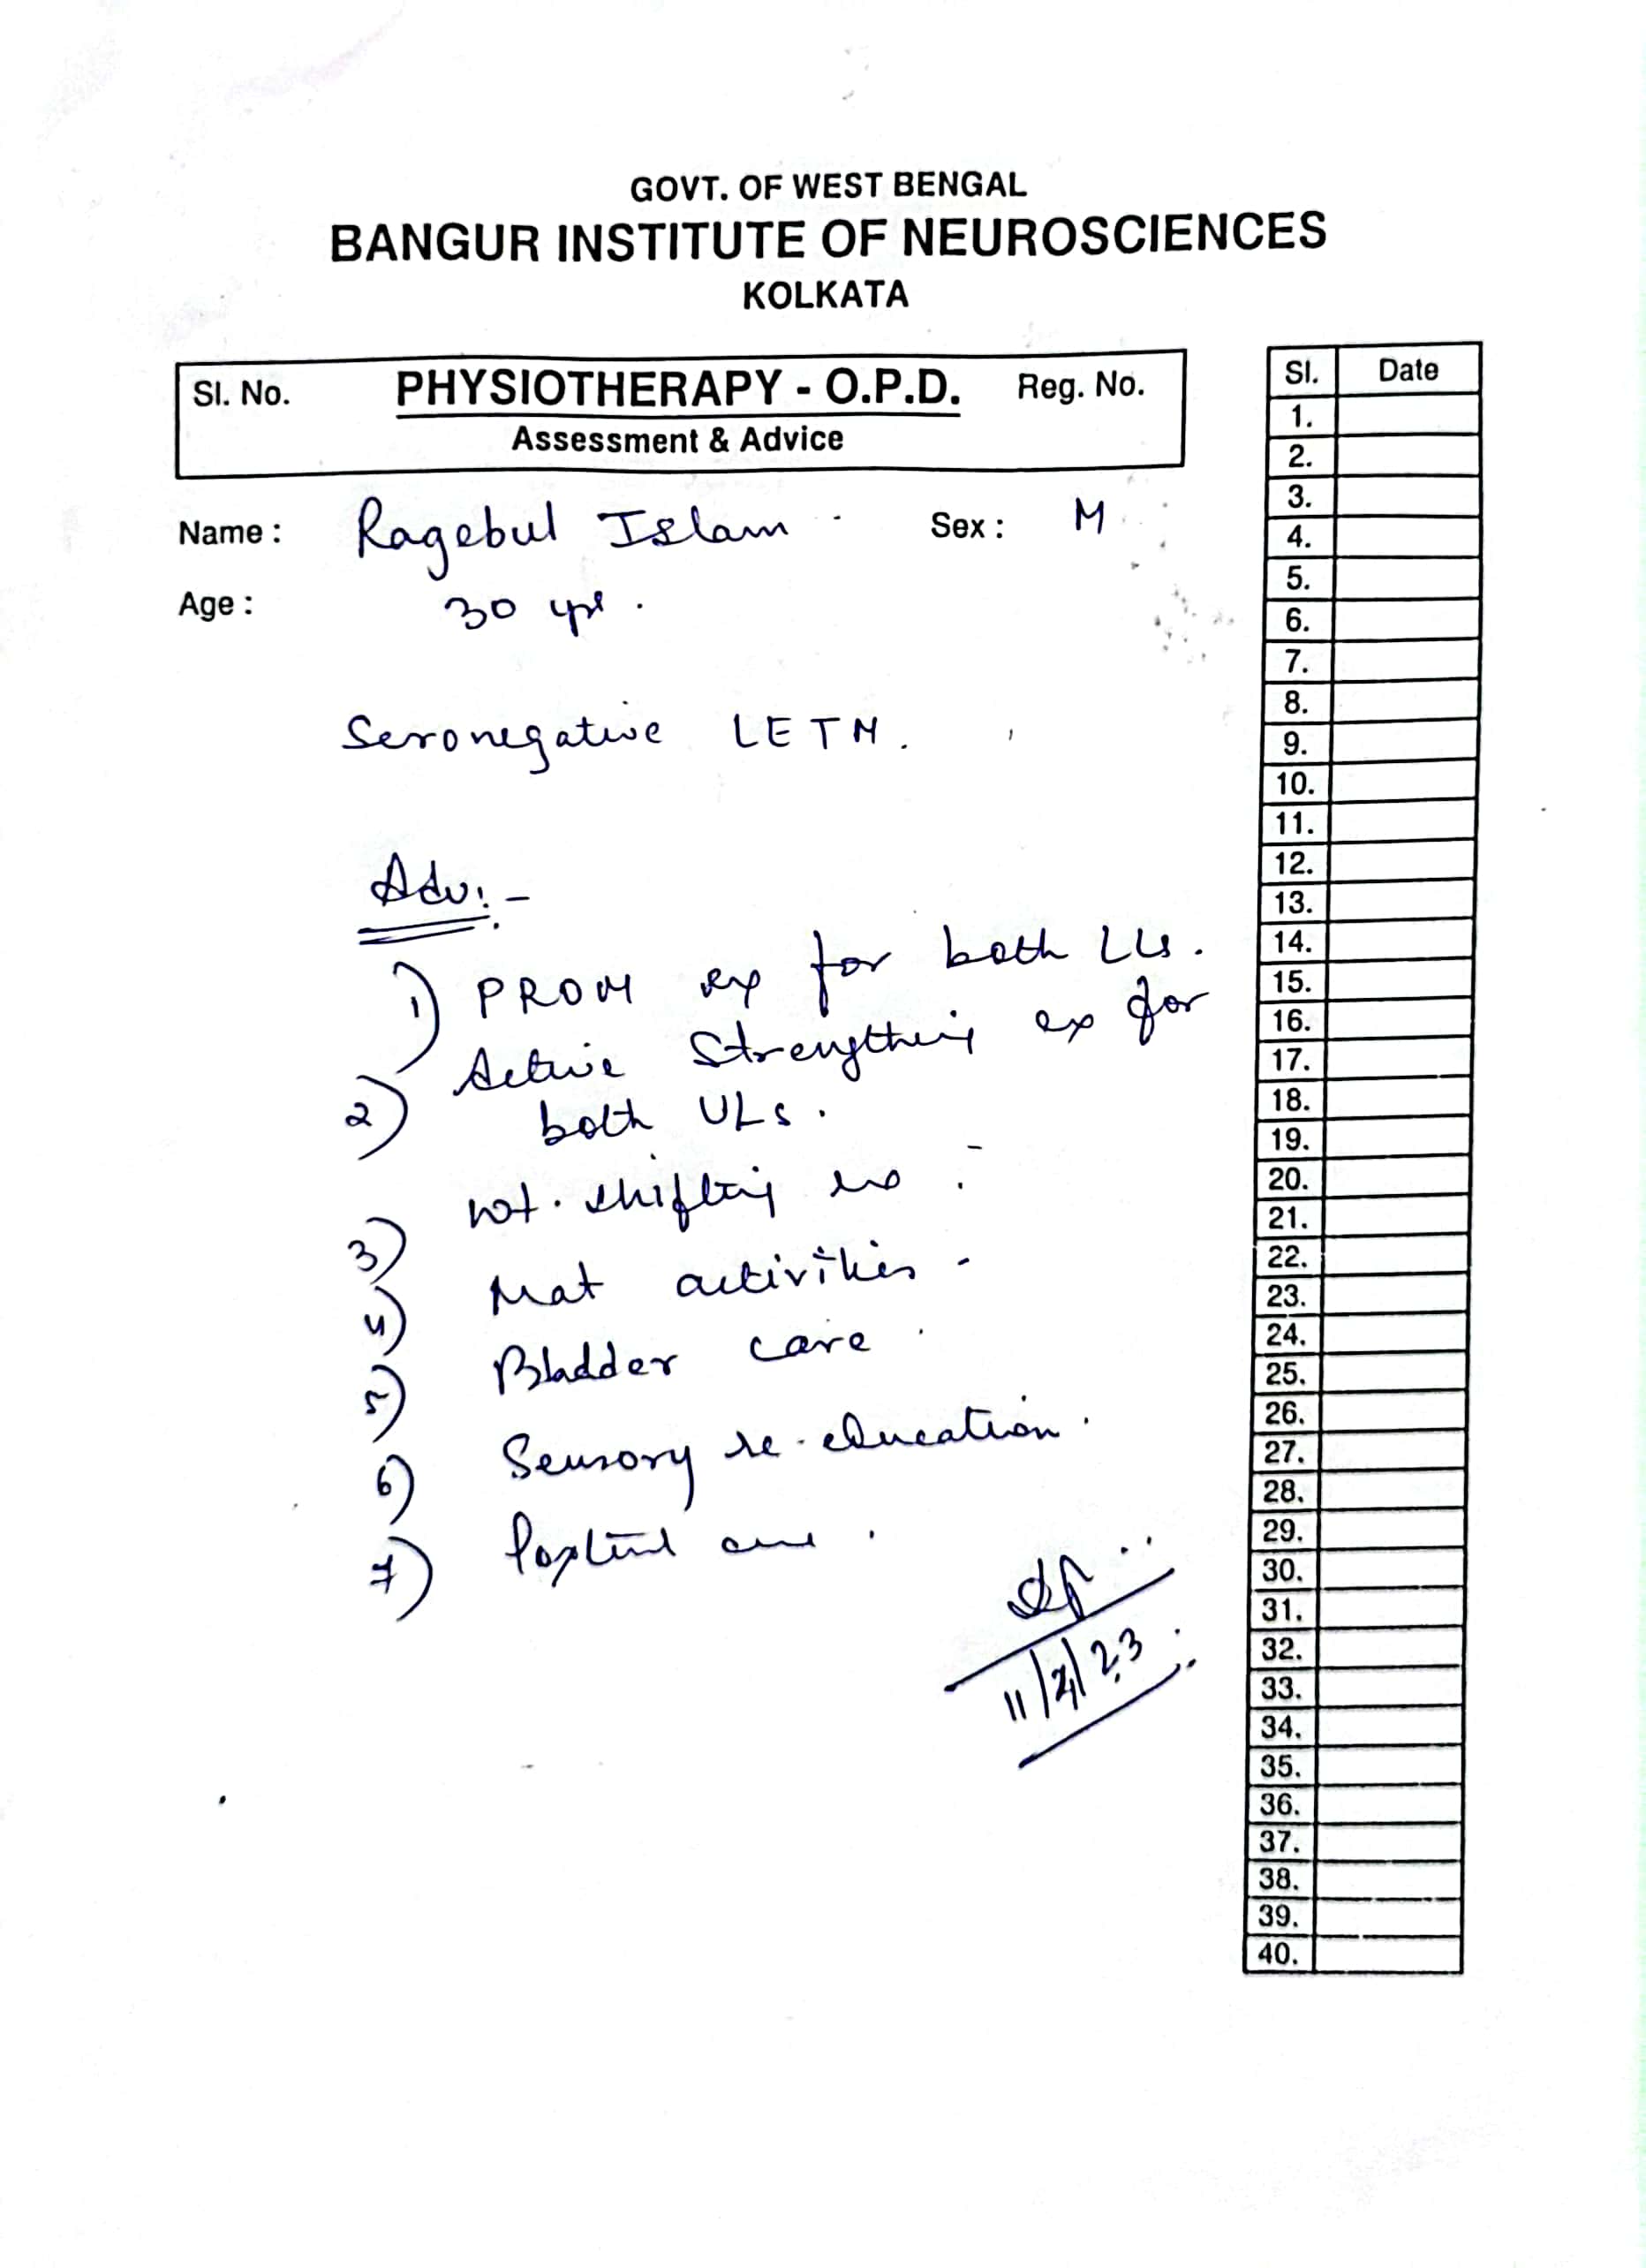 GOVT. OF WEST BENGAL
BANGUR INSTITUTE OF NEUROSCIENCES
KOLKATA
Sl. No. PHYSIOTHERAPY - O.P.D. Reg. No.
Assessment & Advice
Name : Ragebul Islam Sex : M
Age : 30 yrs.
Seronegative LETM.
Adv:-
1) PROM ex for both LLs.
2) Active Strengthening ex for
both ULs.
3) wt. shifting
4) Mat activities.
5) Bladder care.
6) Sensory re-education.
7)
Sl. Date
1.
2.
3.
4.
5.
6.
7.
8.
9.
10.
11.
12.
13.
14.
15.
16.
17.
18.
19.
20.
21.
22.
23.
24.
25.
26.
27.
28.
29.
30.
31.
32.
33.
34.
35.
36.
37.
38.
39.
40.